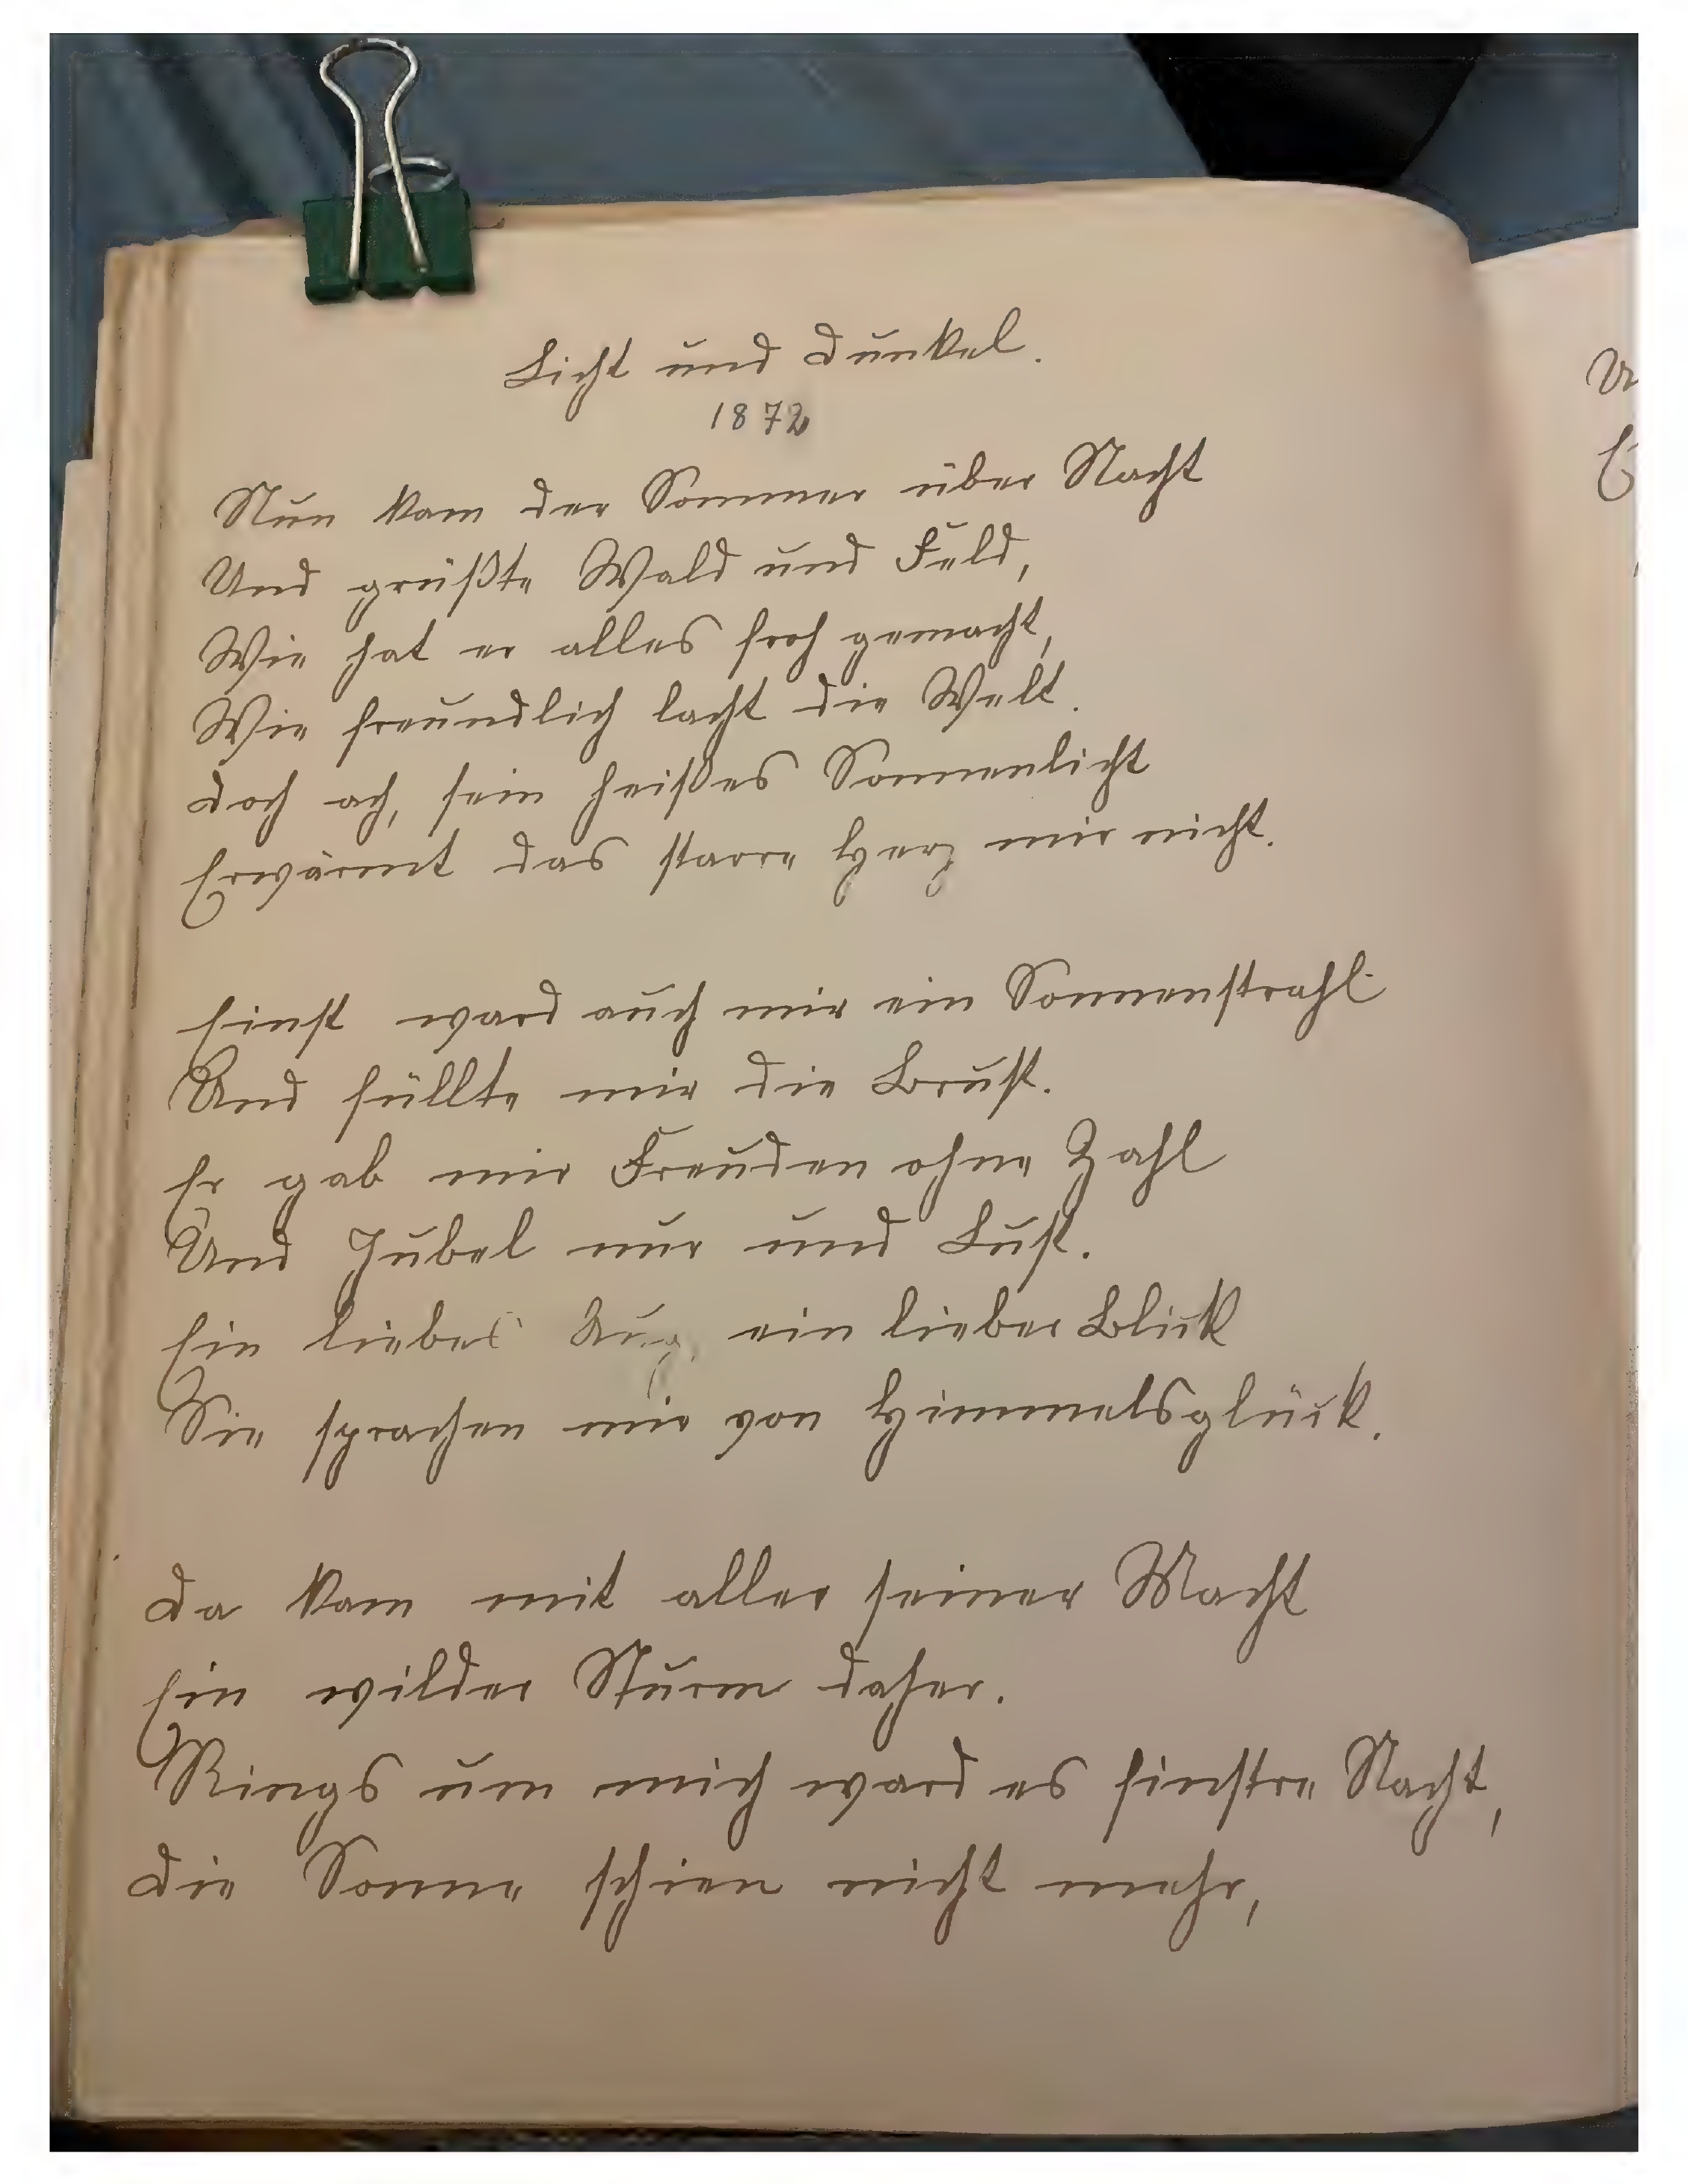 Licht und Dunkel.
1872
Nun kam der Sommer über Nacht
Und grüßte Wald und Feld,
Wie hat er alles froh gemacht,
Wie freundlich lacht die Welt.
Doch ach, sein heißes Sonnenlicht
Erwärmt das starre Herz mir nicht.
Einst ward auch mir ein Sonnenstrahl
Und füllte mir die Brust.
Er gab mir Freuden ohne Zahl
Und Jubel nur und Lust.
Ein liebes Aug, ein lieber Blick
Sie sprachen mir von Himmelsglück.
Da kam mit aller seiner Macht
Ein wilder Sturm daher.
Rings um mich ward es finstre Nacht,
Die Sonne schien nicht mehr,